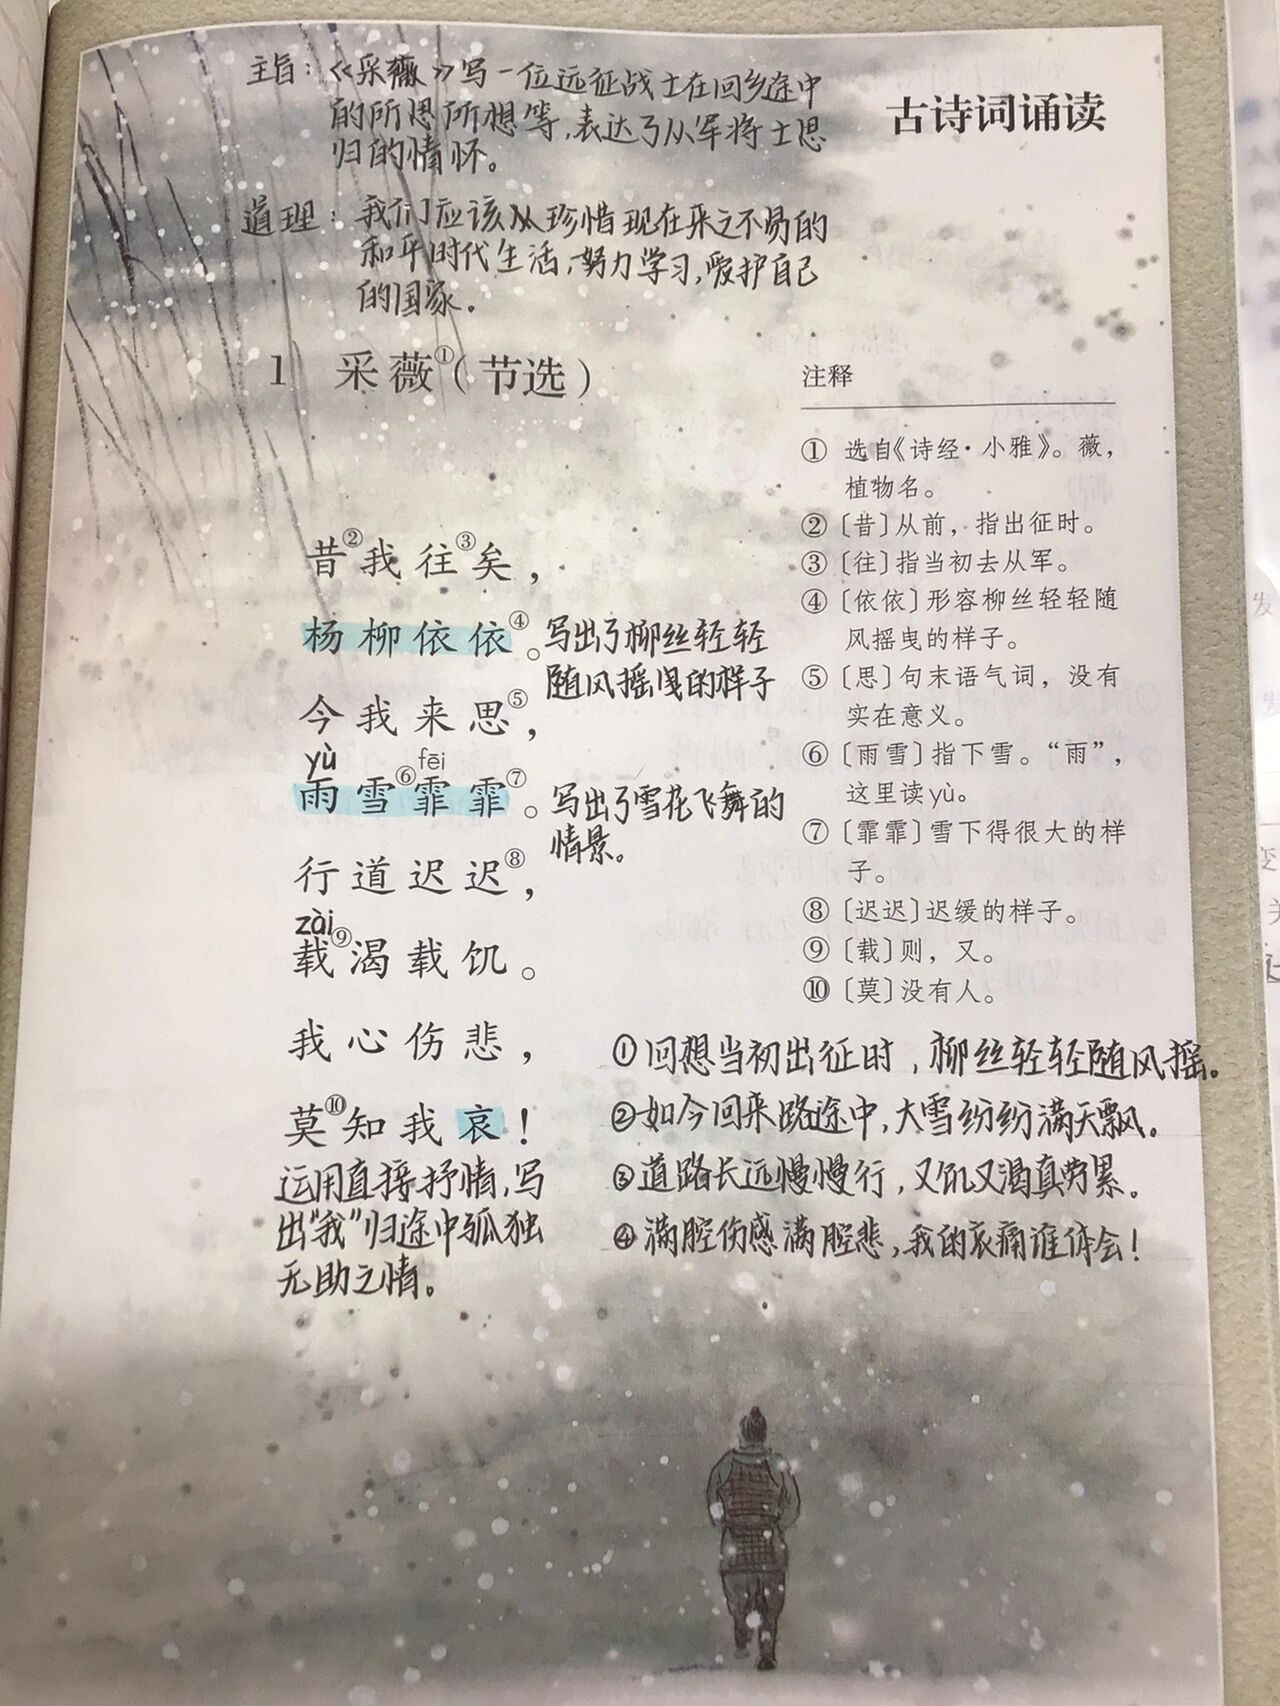 主旨：《采薇》写一位远征战士在回乡途中
的所思所想等，表达了从军将士思
归的情怀。
古诗词诵读
道理：我们应该从珍惜现在来之不易的
和平时代生活，努力学习，爱护自己
的国家.
1 采薇①（节选）
昔②我往③矣，
杨柳依依④。
写出了柳丝轻轻
随风摇曳的样子
今我来思⑤，
yù fēi
雨雪⑥霏霏⑦。
写出了雪花飞舞的
情景。
行道迟迟⑧，
zài
载⑨渴载饥。
我心伤悲，
莫⑩知我哀！
运用直接抒情，写
出“我”归途中孤独
无助之情。
注释
① 选自《诗经·小雅》。薇，
植物名。
②〔昔〕从前，指出征时。
③〔往〕指当初去从军。
④〔依依〕形容柳丝轻轻随
风摇曳的样子。
⑤〔思〕句末语气词，没有
实在意义。
⑥〔雨雪〕指下雪。“雨”，
这里读yù。
⑦〔霏霏〕雪下得很大的样
子。
⑧〔迟迟〕迟缓的样子。
⑨〔载〕则，又。
⑩〔莫〕没有人。
①回想当初出征时，柳丝轻轻随风摇。
②如今回来路途中，大雪纷纷满天飘。
③道路长远慢慢行，又饥又渴真劳累。
④满腔伤感满腔悲，我的哀痛谁体会！